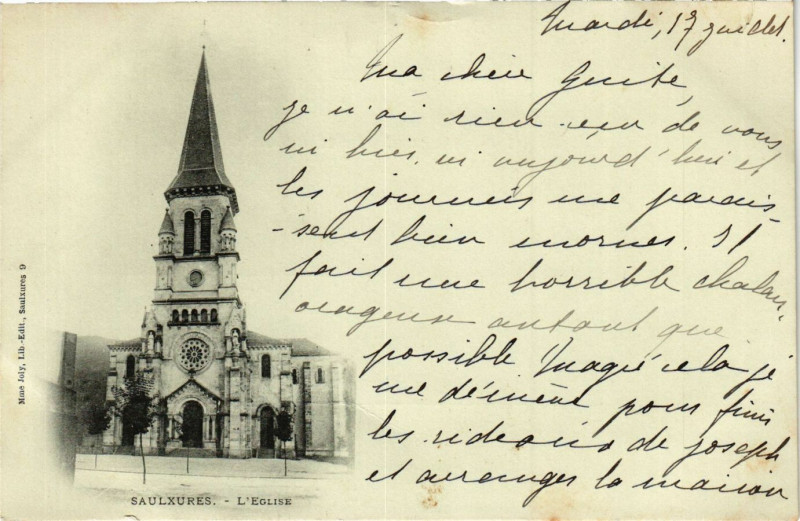 Mardi, 17 juillet.
Ma chère Guite,
je n'ai rien eu de vous
ni hier, ni aujourd'hui et
les journées me parais-
-sent bien mornes. Il
fait une horrible chaleur,
orageux autant que
possible. Malgré cela je
me démène pour finir
les rideaux de Joseph
et arranger la maison
Mme Joly, Lib.-Edit., Saulxures 9
SAULXURES. - L'EGLISE